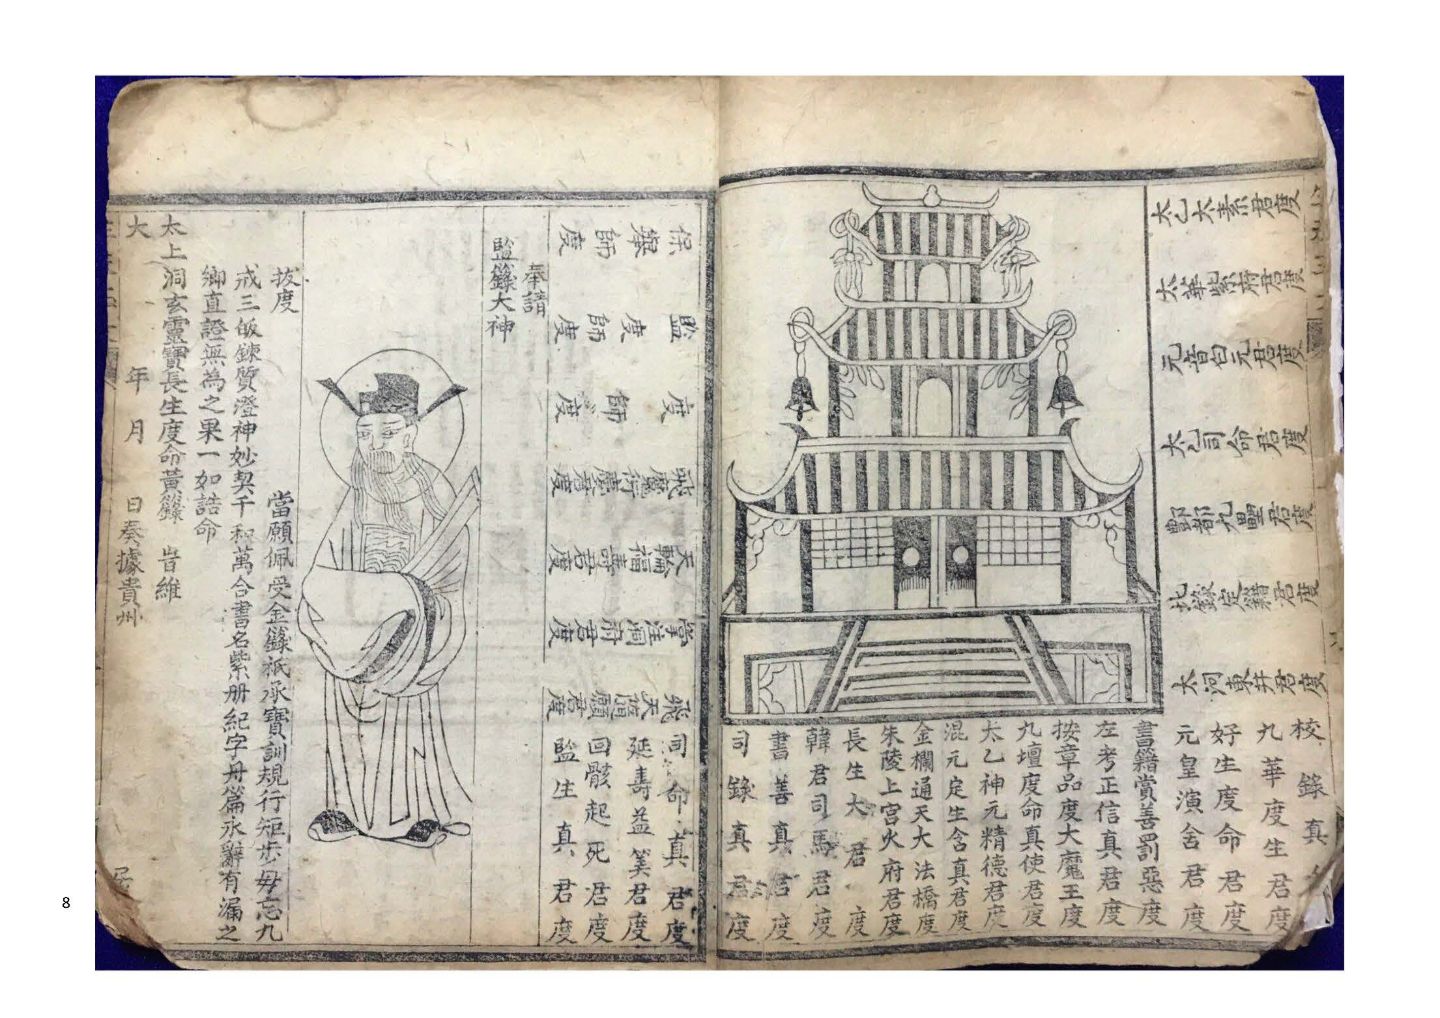 太乙太素君度
太華紫府君度
元音白元君度
太乙司命君度
酆都九壘君度
北籙定籍君度
太河東井君度
校錄真
九華度生君度
好生度命君度
元皇演舍君度
書籍賞善罰惡度
左考正信真君度
按章品度大魔王度
九壇度命真使君度
太乙神元精德君度
混元定生含真君度
金欄通天大法橋度
朱陵上宮火府君度
長生大君度
韓君司馬君度
書善真君度
司錄真君度
保舉師度
監度師度
度師度
飛魔衍慶君度
天輪福壽君度
掌注洞府君度
飛天誓願君度
司命真君度
延壽益筭君度
回骸起死君度
監生真君度
奉請
監籙大神
拔度
當願佩受金籙祇承寶訓規行矩步毋忘九
戒三皈鍊質澄神妙契千和萬合書名紫册紀字丹篇永辭有漏之
鄉直證無為之果一如誥命
太上洞玄靈寶長生度命黃籙 旹維
大 年 月 日奏據貴州
8